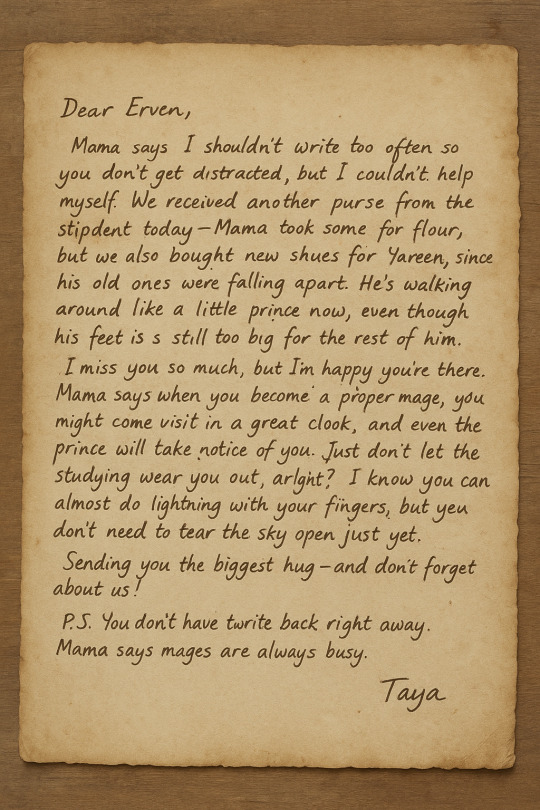 Dear Erven,
Mama says I shouldn't write too often so
you don't get distracted, but I couldn't. help
myself. We received another purse from the
stipdent today – Mama took some for flour,
but we also bought new shues for Yareen, since
his old ones were falling apart. He's walking
around like a little prince now, even though
his feet is s still too big for the rest of him.
I miss you so much, but I'm happy you're there.
Mama says when you become a proper mage, you
might come visit in a great clook, and even the
prince will take notice of you. Just don't let the
studying wear you out, arlght? I know you can
almost do lightning with your fingers, but yeu
don't need to tear the sky open just yet.
Sending you the biggest hug – and don't forget
about us!
P.S. You don't have twrite back right away.
Mama says mages are always busy.
Taya